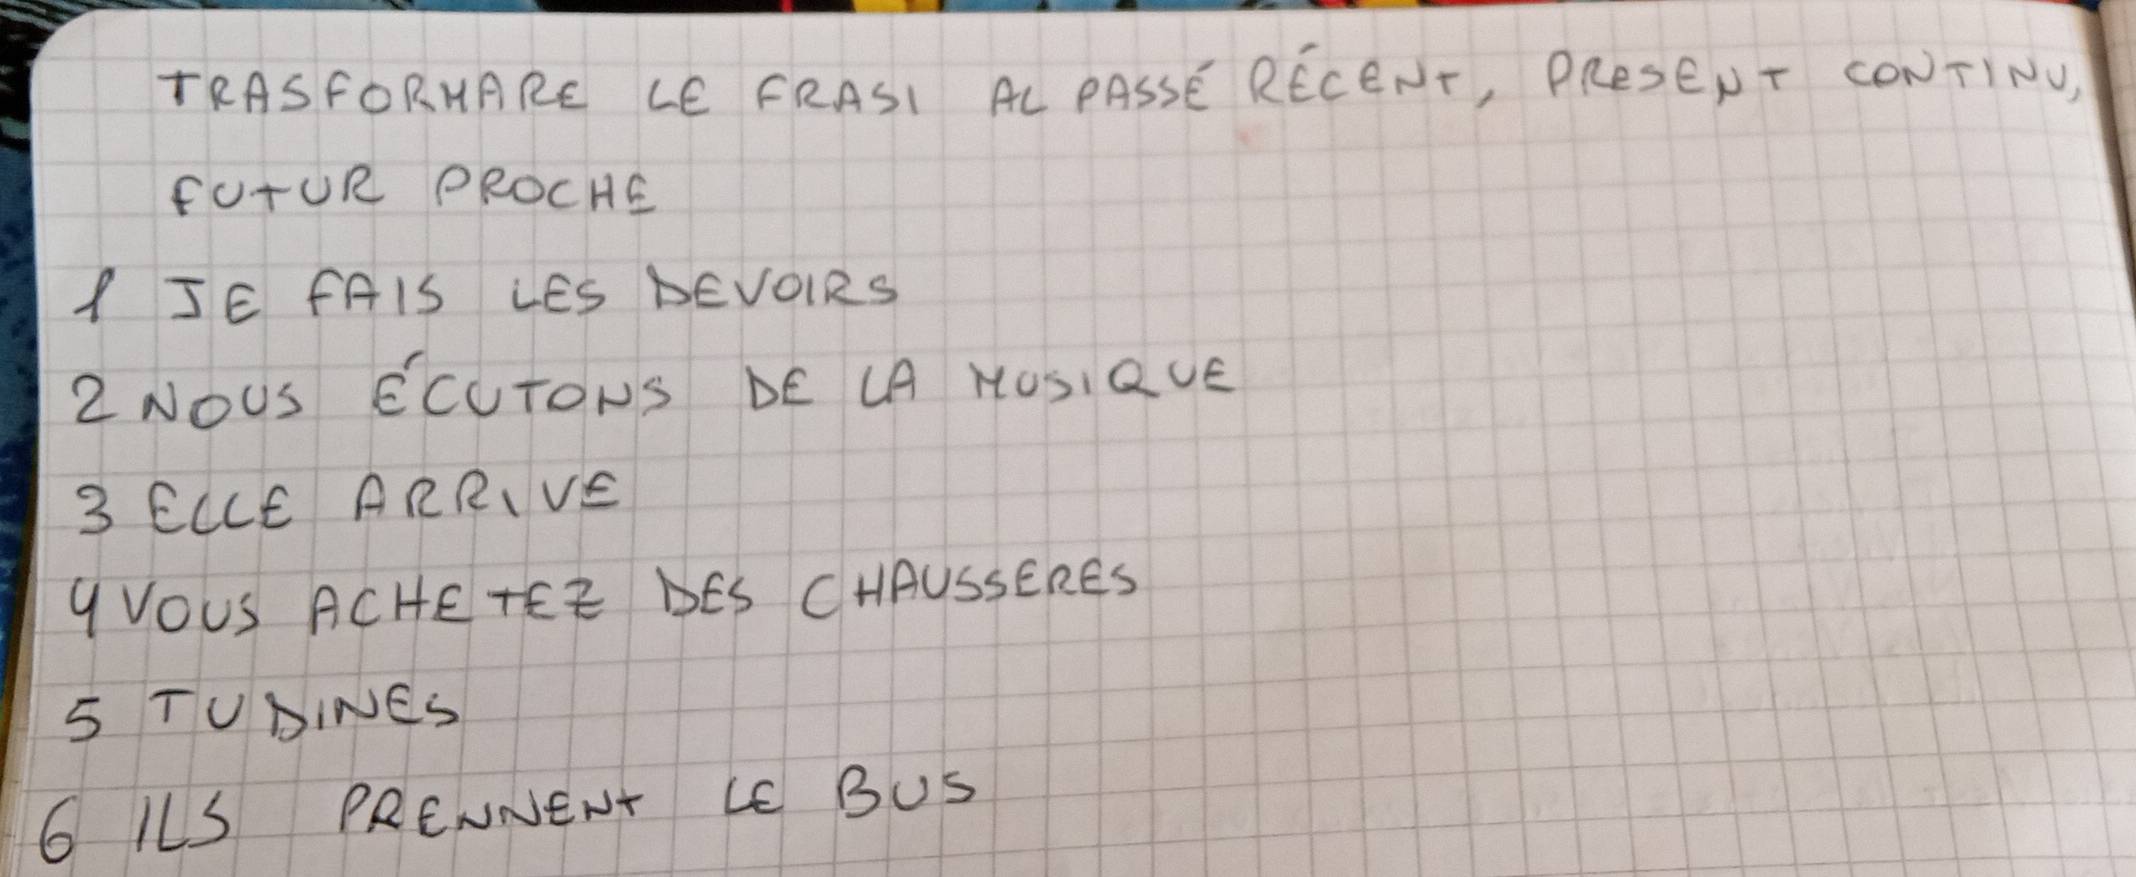 TRASFORMARE LE FRASI AL PASSÉ RÉCENT, PRESENT CONTINU,
FUTUR PROCHE
1 JE FAIS LES DEVOIRS
2 NOUS ÉCUTONS DE LA MUSIQUE
3 ELLE ARRIVE
4 VOUS ACHETEZ DES CHAUSSERES
5 TU DINES
6 ILS PRENNENT LE BUS